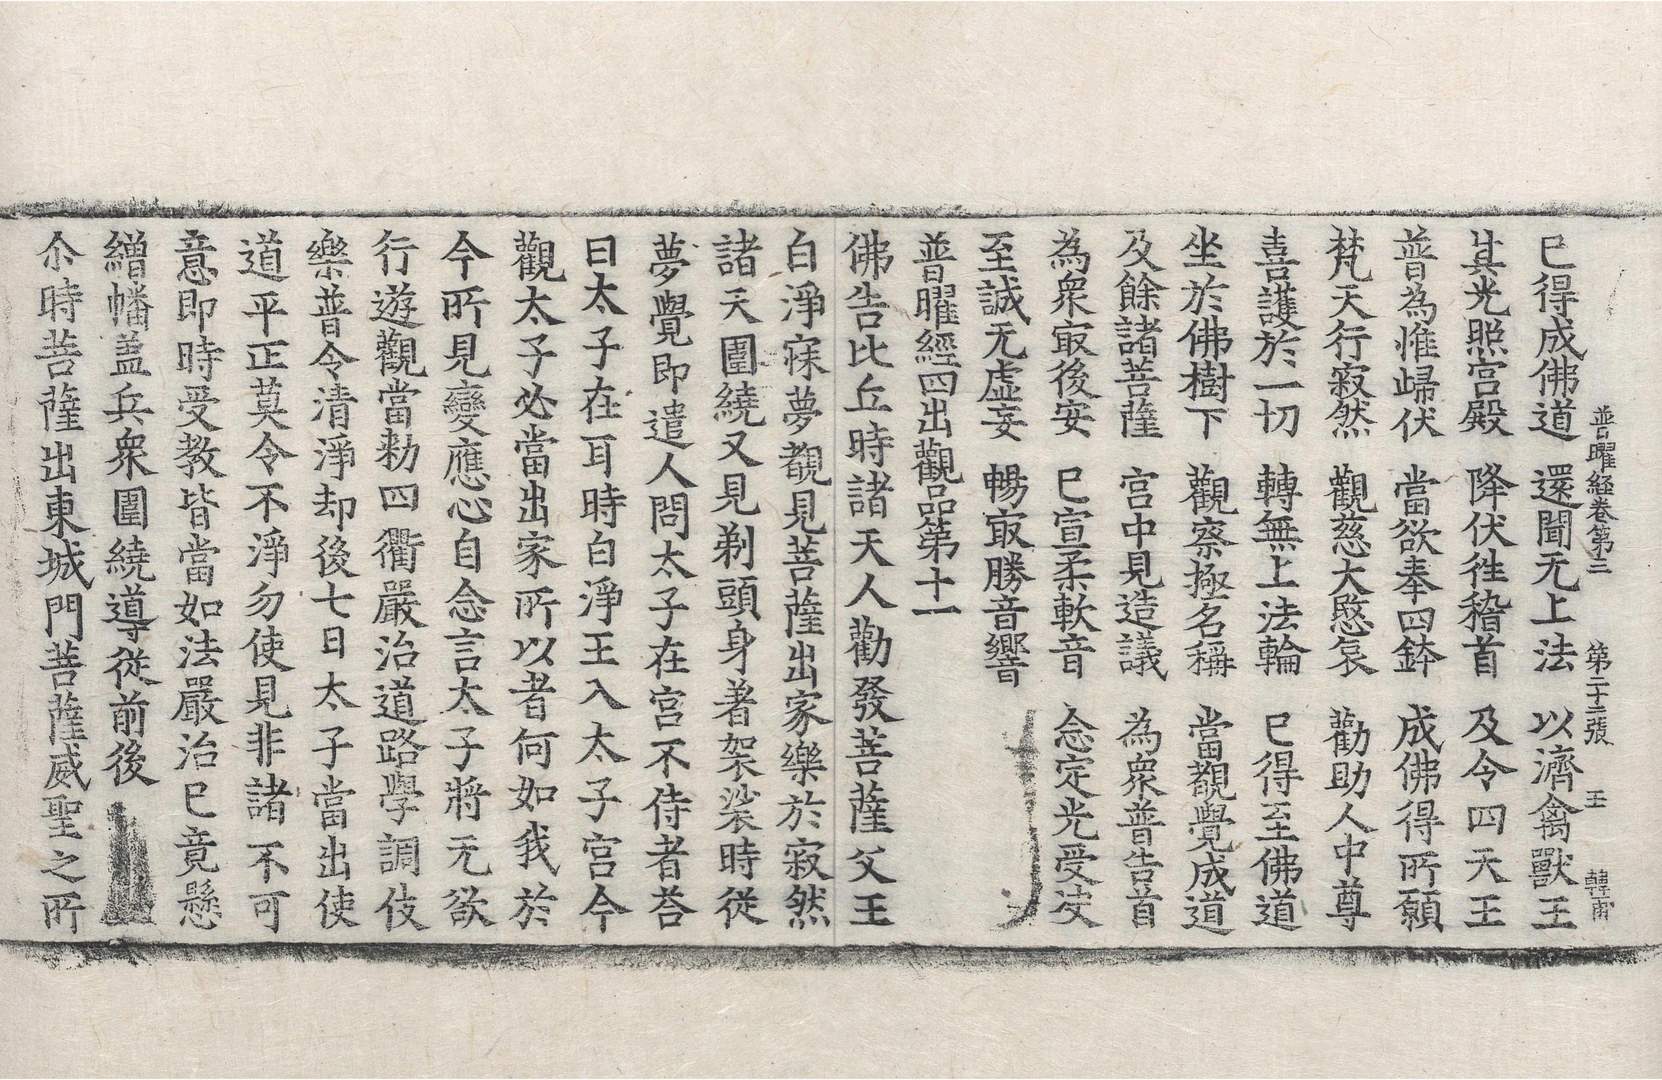 普曜經卷第三 第二十三張 王 韓甫
已得成佛道 還聞无上法 以濟禽獸王
其光照宮殿 降伏徃稽首 及令四天王
普為惟歸伏 當欲奉四鉢 成佛得所願
梵天行寂然 觀慈大愍哀 勸助人中尊
喜護於一切 轉無上法輪 已得至佛道
坐於佛樹下 觀察極名稱 當觀覺成道
及餘諸菩薩 宮中見造議 為衆普告首
為衆㝡後安 已宣柔軟音 念定光受决
至誠无虛妄 暢㝡勝音響
普曜經四出觀品第十一
佛告比丘時諸天人勸發菩薩父王
白淨寐夢覩見菩薩出家樂於寂然
諸天圍繞又見剃頭身著袈裟時從
夢覺即遣人問太子在宮不侍者荅
曰太子在耳時白淨王入太子宮今
觀太子必當出家所以者何如我於
今所見變應心自念言太子將无欲
行遊觀當勑四衢嚴治道路學調伎
樂普令清淨却後七日太子當出使
道平正莫令不淨勿使見非諸不可
意即時受教皆當如法嚴治已竟懸
繒幡盖兵衆圍繞導從前後
尒時菩薩出東城門菩薩威聖之所